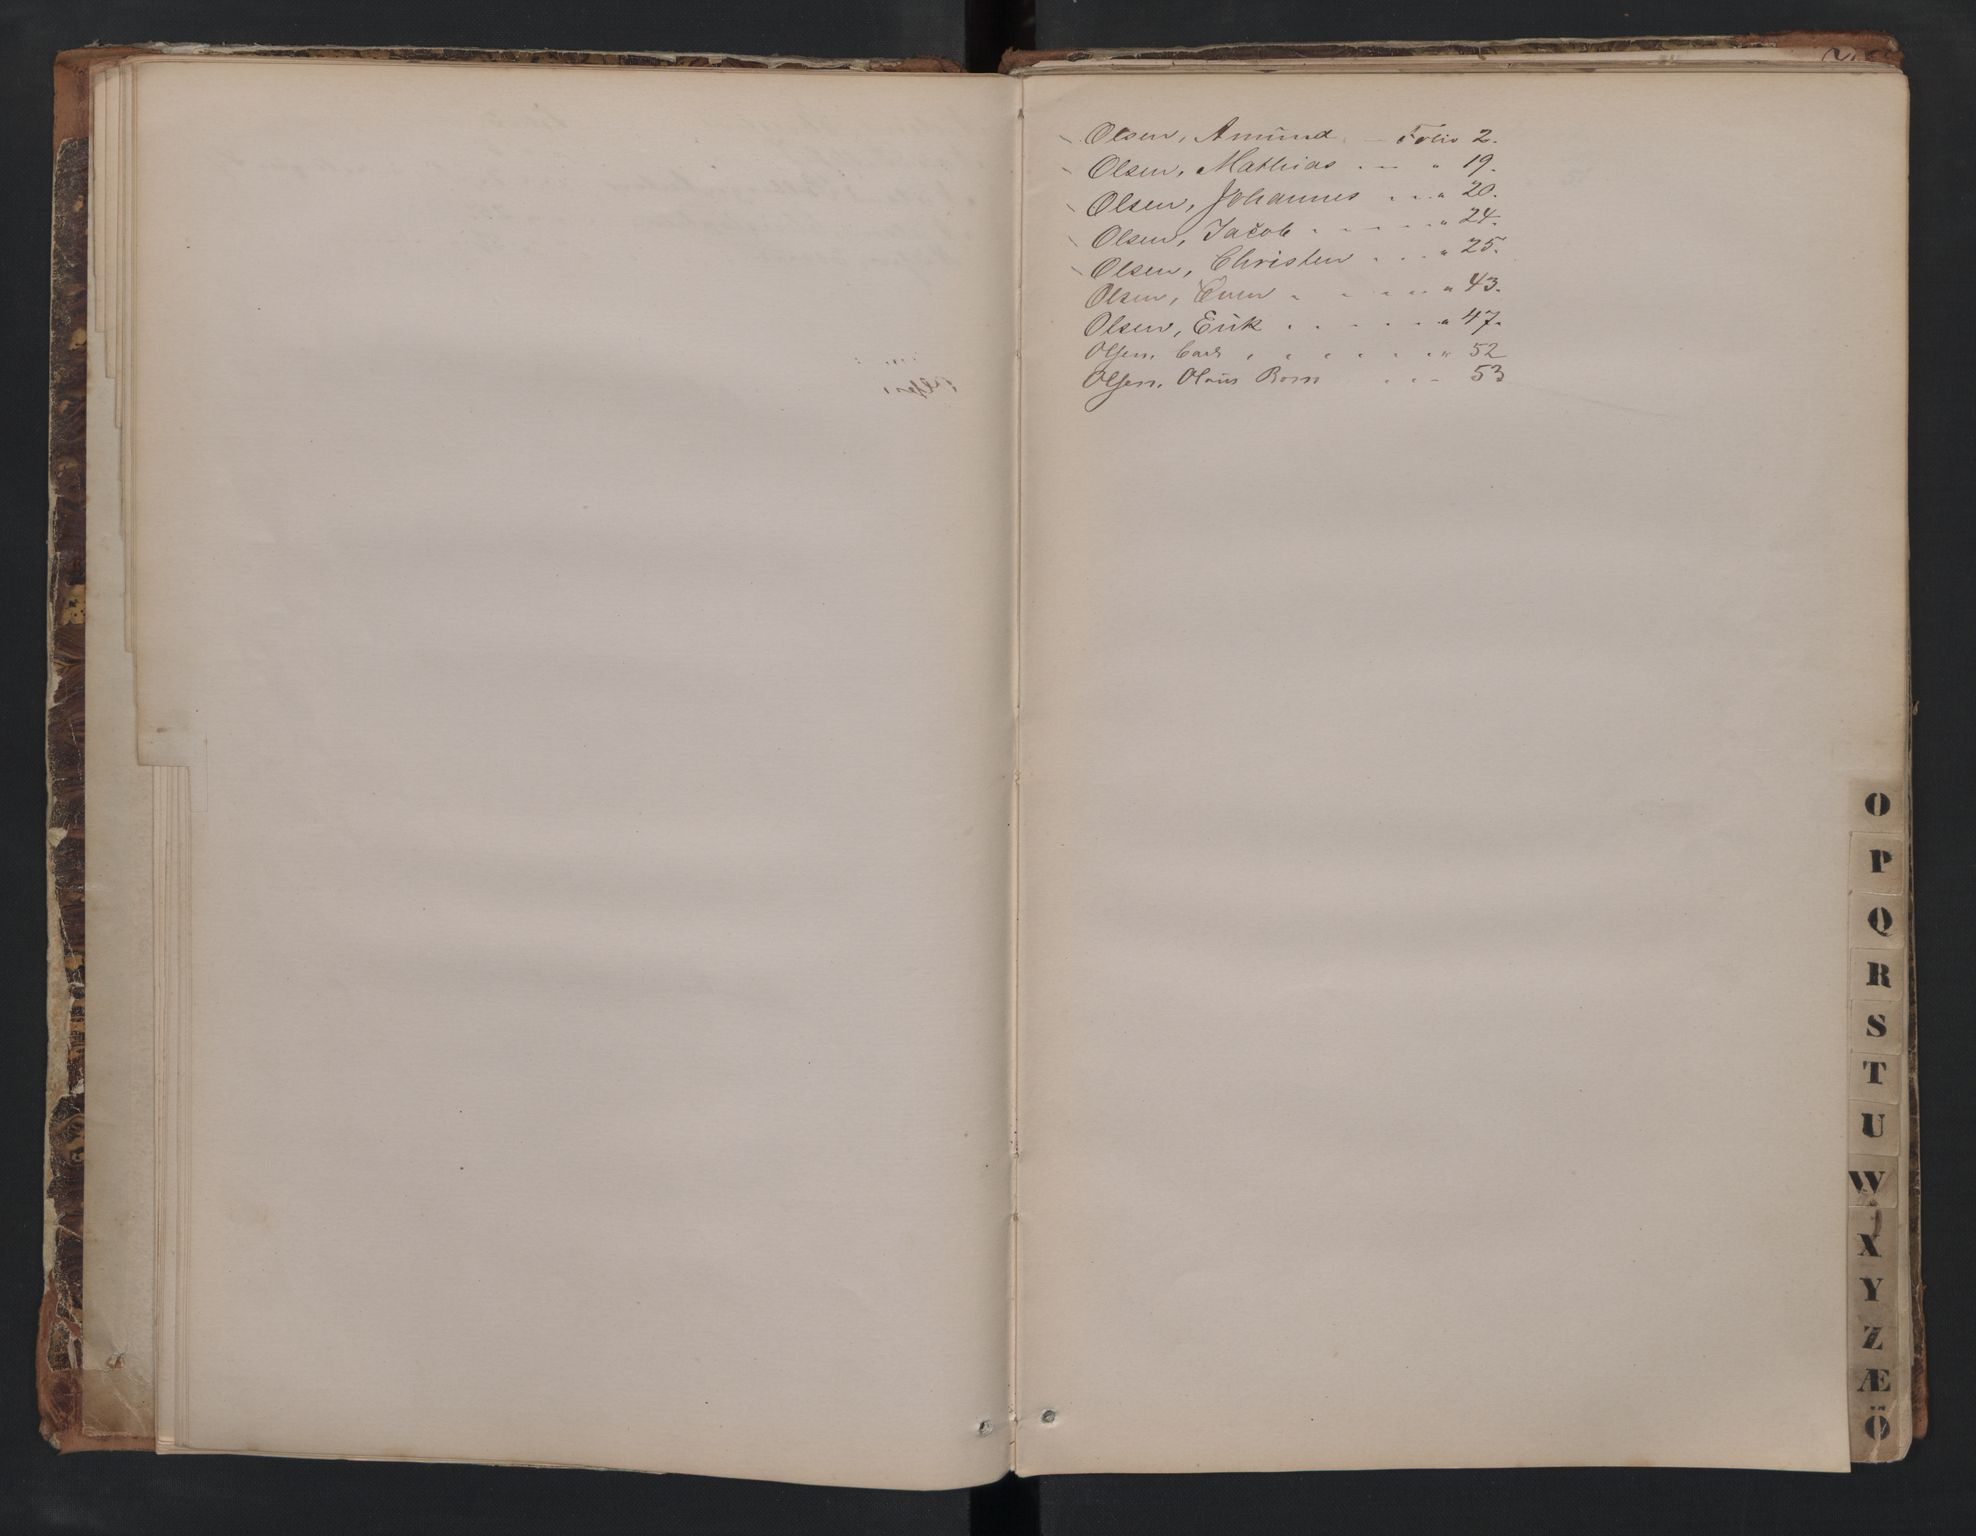 Olsen, Amund. — Folio 2.
Olsen, Mathias - - - " 19.
Olsen, Johannes - - - " 20.
Olsen, Jacob - - - - - " 24.
Olsen, Christen - - - " 25.
Olsen, Even - - - - - " 43.
Olsen, Erik - - - - - " 47.
Olsen, Carl, - - - - - " 52
Olsen, Olaus Born - - - 53
O
P
Q
R
S
T
U
W
X
Y
Z
Æ
Ö